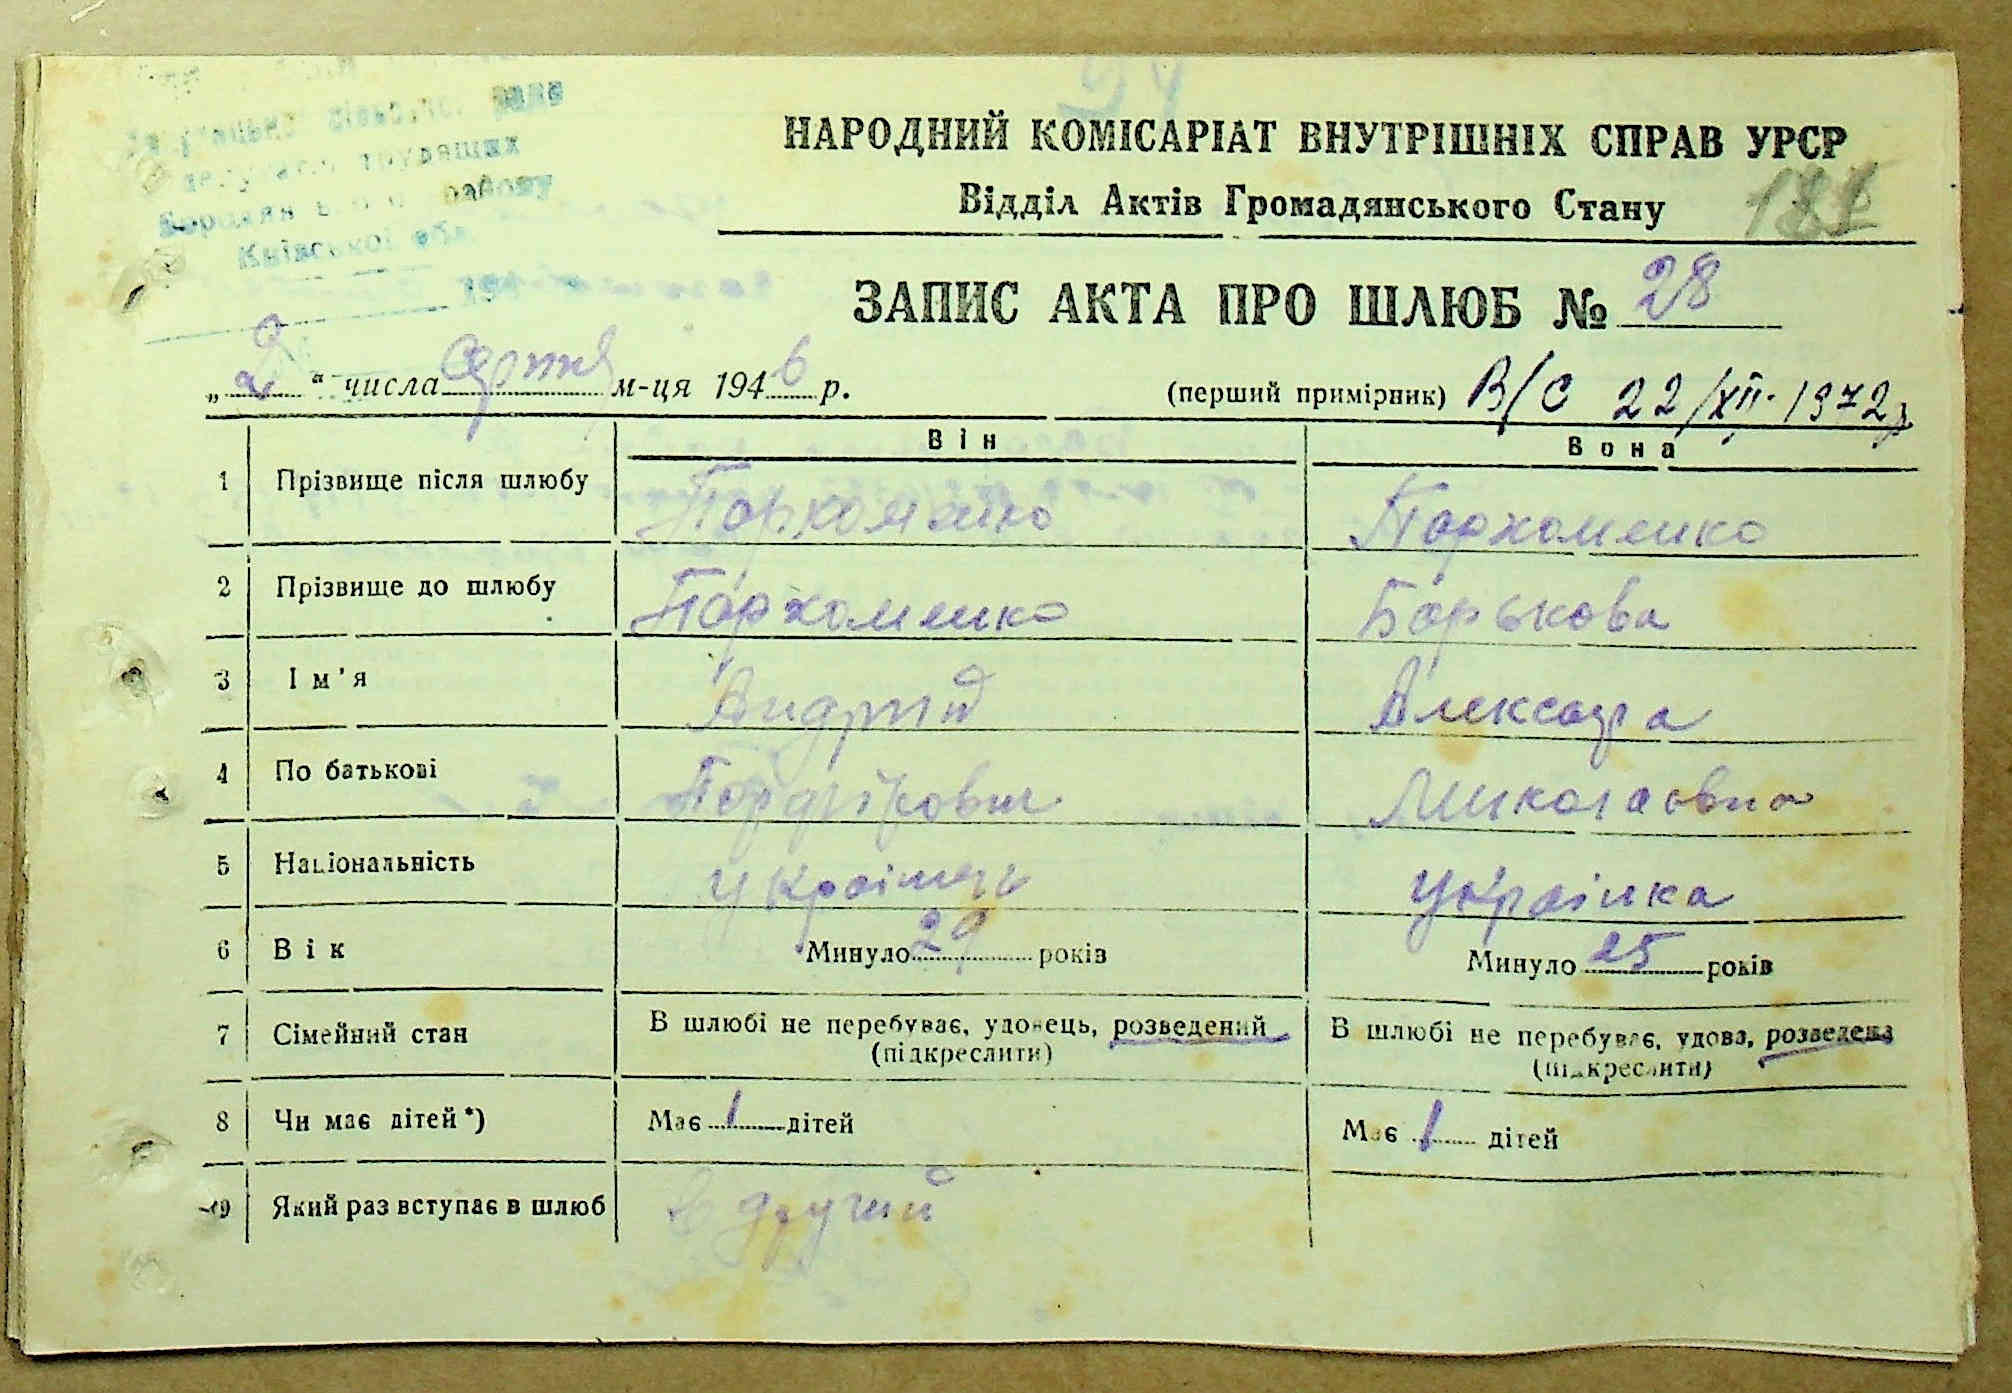 сільської ради
депутатів трудящих
Бородянського району
Київської обл.
194
НАРОДНИЙ КОМІСАРІАТ ВНУТРІШНІХ СПРАВ УРСР
Відділ Актів Громадянського Стану
ЗАПИС АКТА ПРО ШЛЮБ № 28
„2" числа серпня м-ця 1946 р.
(перший примірник) В/С 22/XII-1972р
Він Вона
1 Прізвище після шлюбу Пархоменко Пархоменко
2 Прізвище до шлюбу Пархоменко Борькова
3 Ім'я Андрий Александра
4 По батькові Порфірович Миколаовна
5 Національність Українець Українка
6 Вік Минуло 29 років Минуло 25 років
7 Сімейний стан В шлюбі не перебуває, удовець, розведений (підкреслити) В шлюбі не перебуває, удова, розведена (підкреслити)
8 Чи має дітей*) Має 1 дітей Має 1 дітей
9 Який раз вступає в шлюб в другий